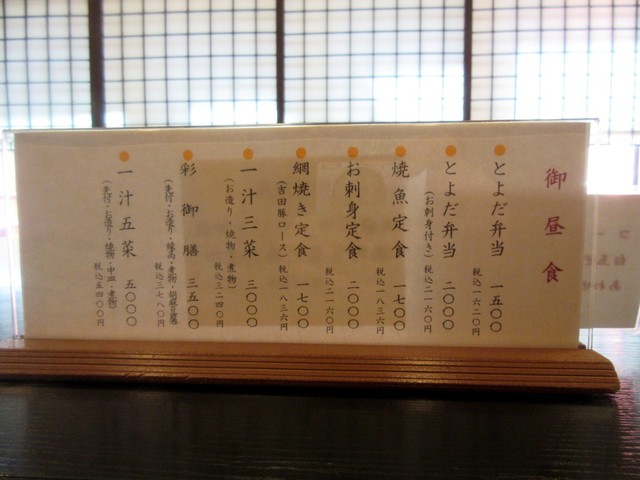 御昼食
とよだ弁当 一五〇〇
税込一六二〇円
とよだ弁当 二〇〇〇
(お刺身付き) 税込二一六〇円
焼魚定食 一七〇〇
税込一八三六円
お刺身定食 二〇〇〇
税込二一六〇円
網焼き定食 一七〇〇
(吉田豚ロース) 税込一八三六円
一汁三菜 三〇〇〇
(お造り・焼物・煮物) 税込三二四〇円
彩御膳 三五〇〇
(先付・お造り・縁高・煮物・胡麻豆腐) 税込三七八〇円
一汁五菜 五〇〇〇
(先付・お造り・焼物・中皿・煮物) 税込五四〇〇円